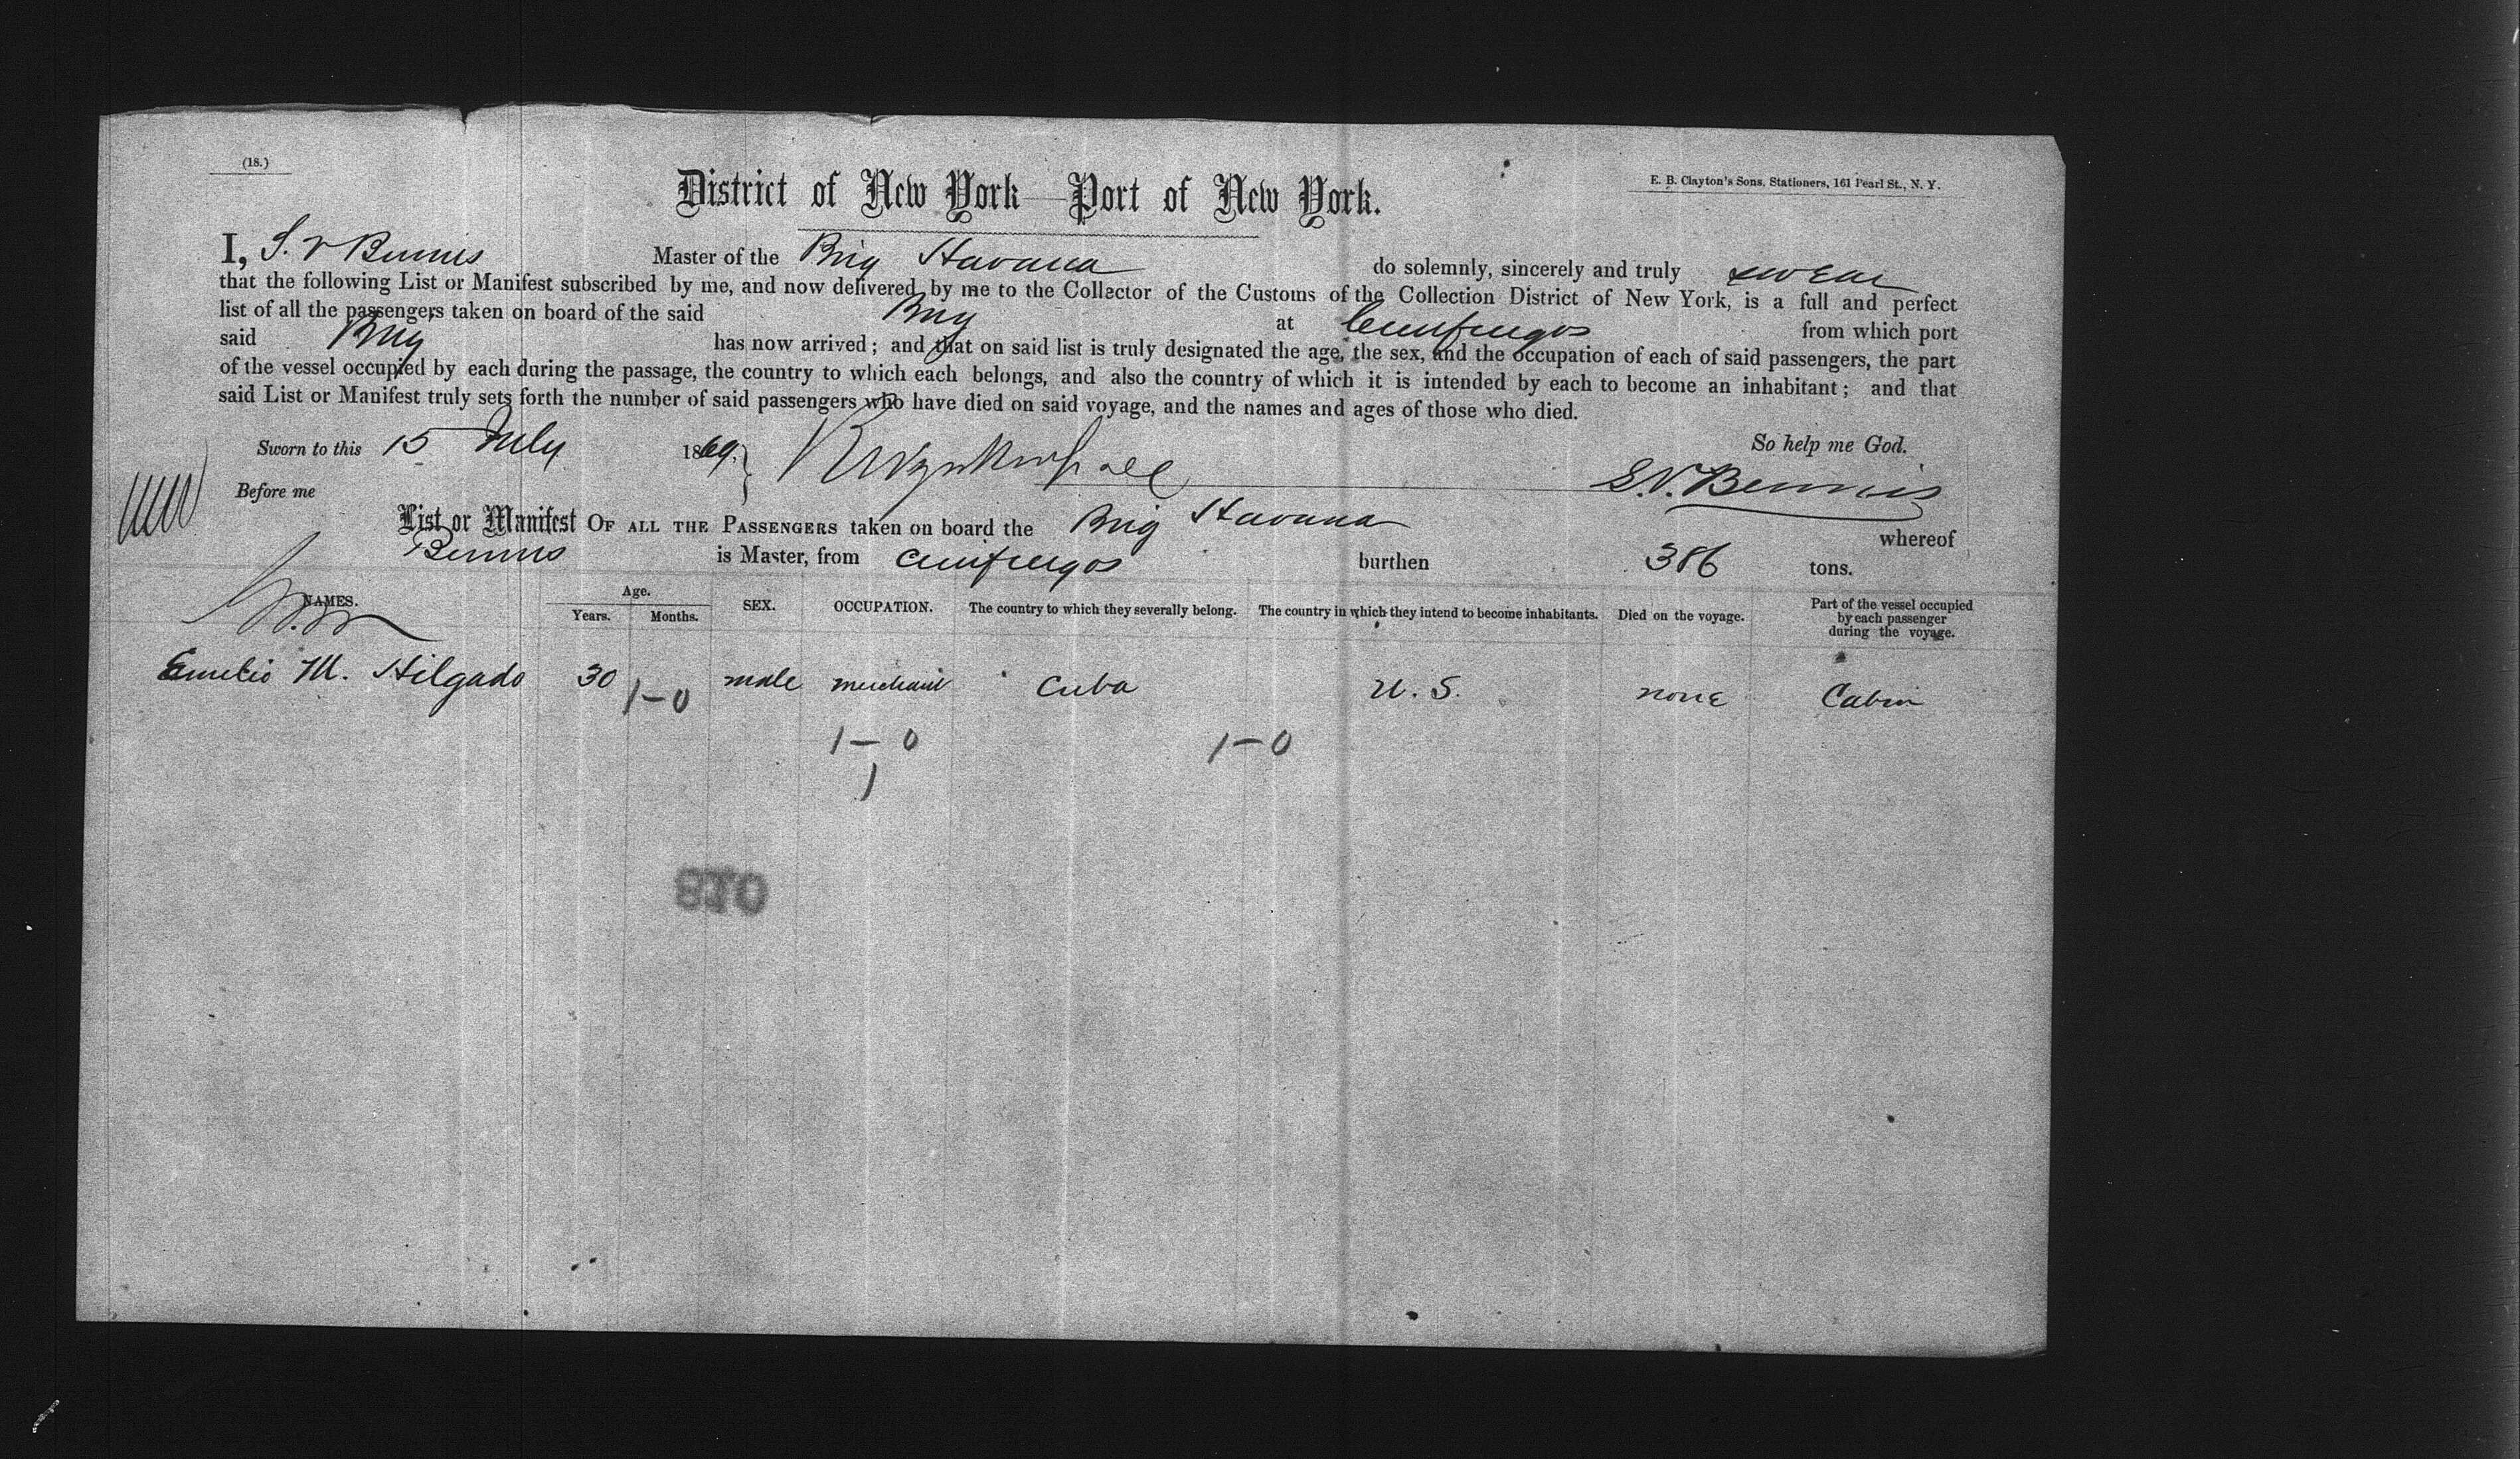 (18.)
E. B. Clayton's Sons, Stationers, 161 Pearl St., N. Y.
District of New York—Port of New York.
I, S. V Bennis Master of the Brig Havana do solemnly, sincerely and truly swear
that the following List or Manifest subscribed by me, and now delivered by me to the Collector of the Customs of the Collection District of New York, is a full and perfect
list of all the passengers taken on board of the said Brig at Cienfuegos from which port
said Brig has now arrived; and that on said list is truly designated the age, the sex, and the occupation of each of said passengers, the part
of the vessel occupied by each during the passage, the country to which each belongs, and also the country of which it is intended by each to become an inhabitant; and that
said List or Manifest truly sets forth the number of said passengers who have died on said voyage, and the names and ages of those who died.
Sworn to this 15 July 1869, So help me God.
Before me S. V. Bennis
List or Manifest OF ALL THE PASSENGERS taken on board the Brig Havana whereof
Bennis is Master, from Cienfuegos burthen 386 tons.
NAMES. Age. Years. Months. SEX. OCCUPATION. The country to which they severally belong. The country in which they intend to become inhabitants. Died on the voyage. Part of the vessel occupied by each passenger during the voyage.
Emelio M. Hilgado 30 male merchant Cuba U. S. none Cabin
1-0
1-0 1-0
1